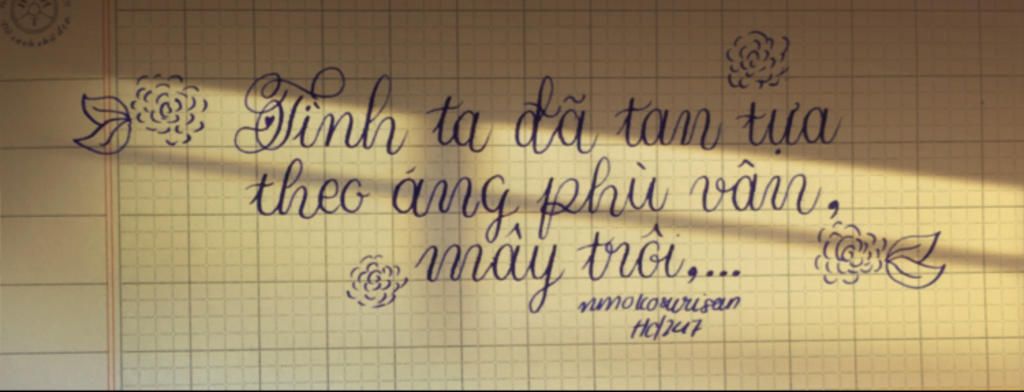 Tình ta đã tan tựa
theo áng phù vân,
mây trôi,...